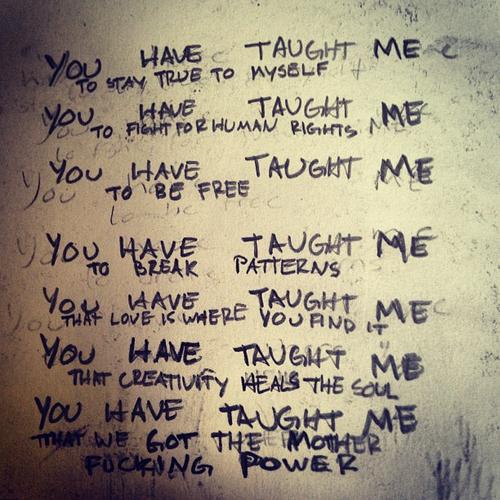 YOU HAVE TAUGHT ME
TO STAY TRUE TO MYSELF
YOU HAVE TAUGHT ME
TO FIGHT FOR HUMAN RIGHTS
YOU HAVE TAUGHT ME
TO BE FREE
YOU HAVE TAUGHT ME
TO BREAK PATTERNS
YOU HAVE TAUGHT ME
THAT LOVE IS WHERE YOU FIND IT
YOU HAVE TAUGHT ME
THAT CREATIVITY HEALS THE SOUL
YOU HAVE TAUGHT ME
THAT WE GOT THE MOTHER
FUCKING POWER